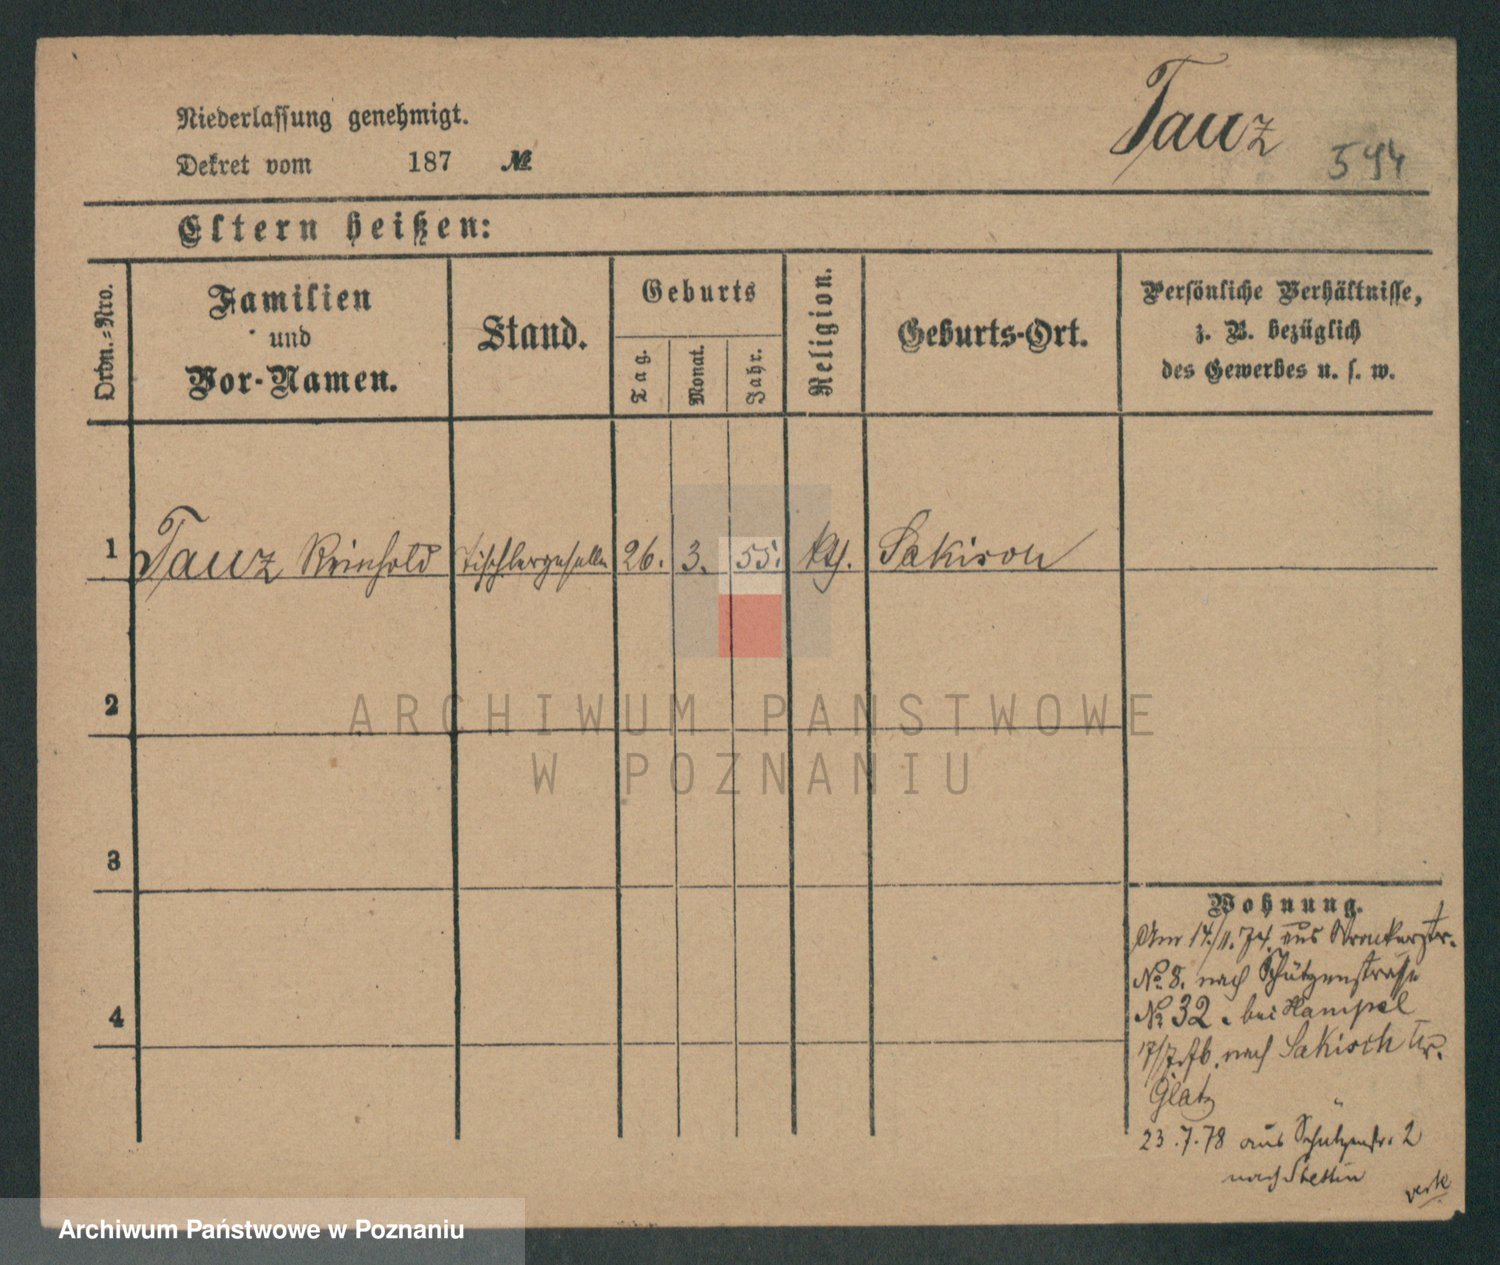 Niederlassung genehmigt.
Dekret vom 187 №
Tauz
594
Eltern heißen:
Ordn.=Nro.
Familien
und
Vor-Namen.
Stand.
Geburts
Tag.
Monat.
Jahr.
Religion.
Geburts-Ort.
Persönliche Verhältnisse,
z. B. bezüglich
des Gewerbes u. s. w.
1 Tauz Reinhold Tischlergeselle 26. 3. 55. kth. Sakisch
2
3
4
Wohnung.
Am 14/11.74. aus Wronkerstr.
No 8. nach Schützenstraße
No 32. bei Hampel
17/7.76. nach Sakisch Kr.
Glatz
23.7.78 aus Schützenstr. 2
nach Stettin
ARCHIWUM PAŃSTWOWE
W POZNANIU
Archiwum Państwowe w Poznaniu